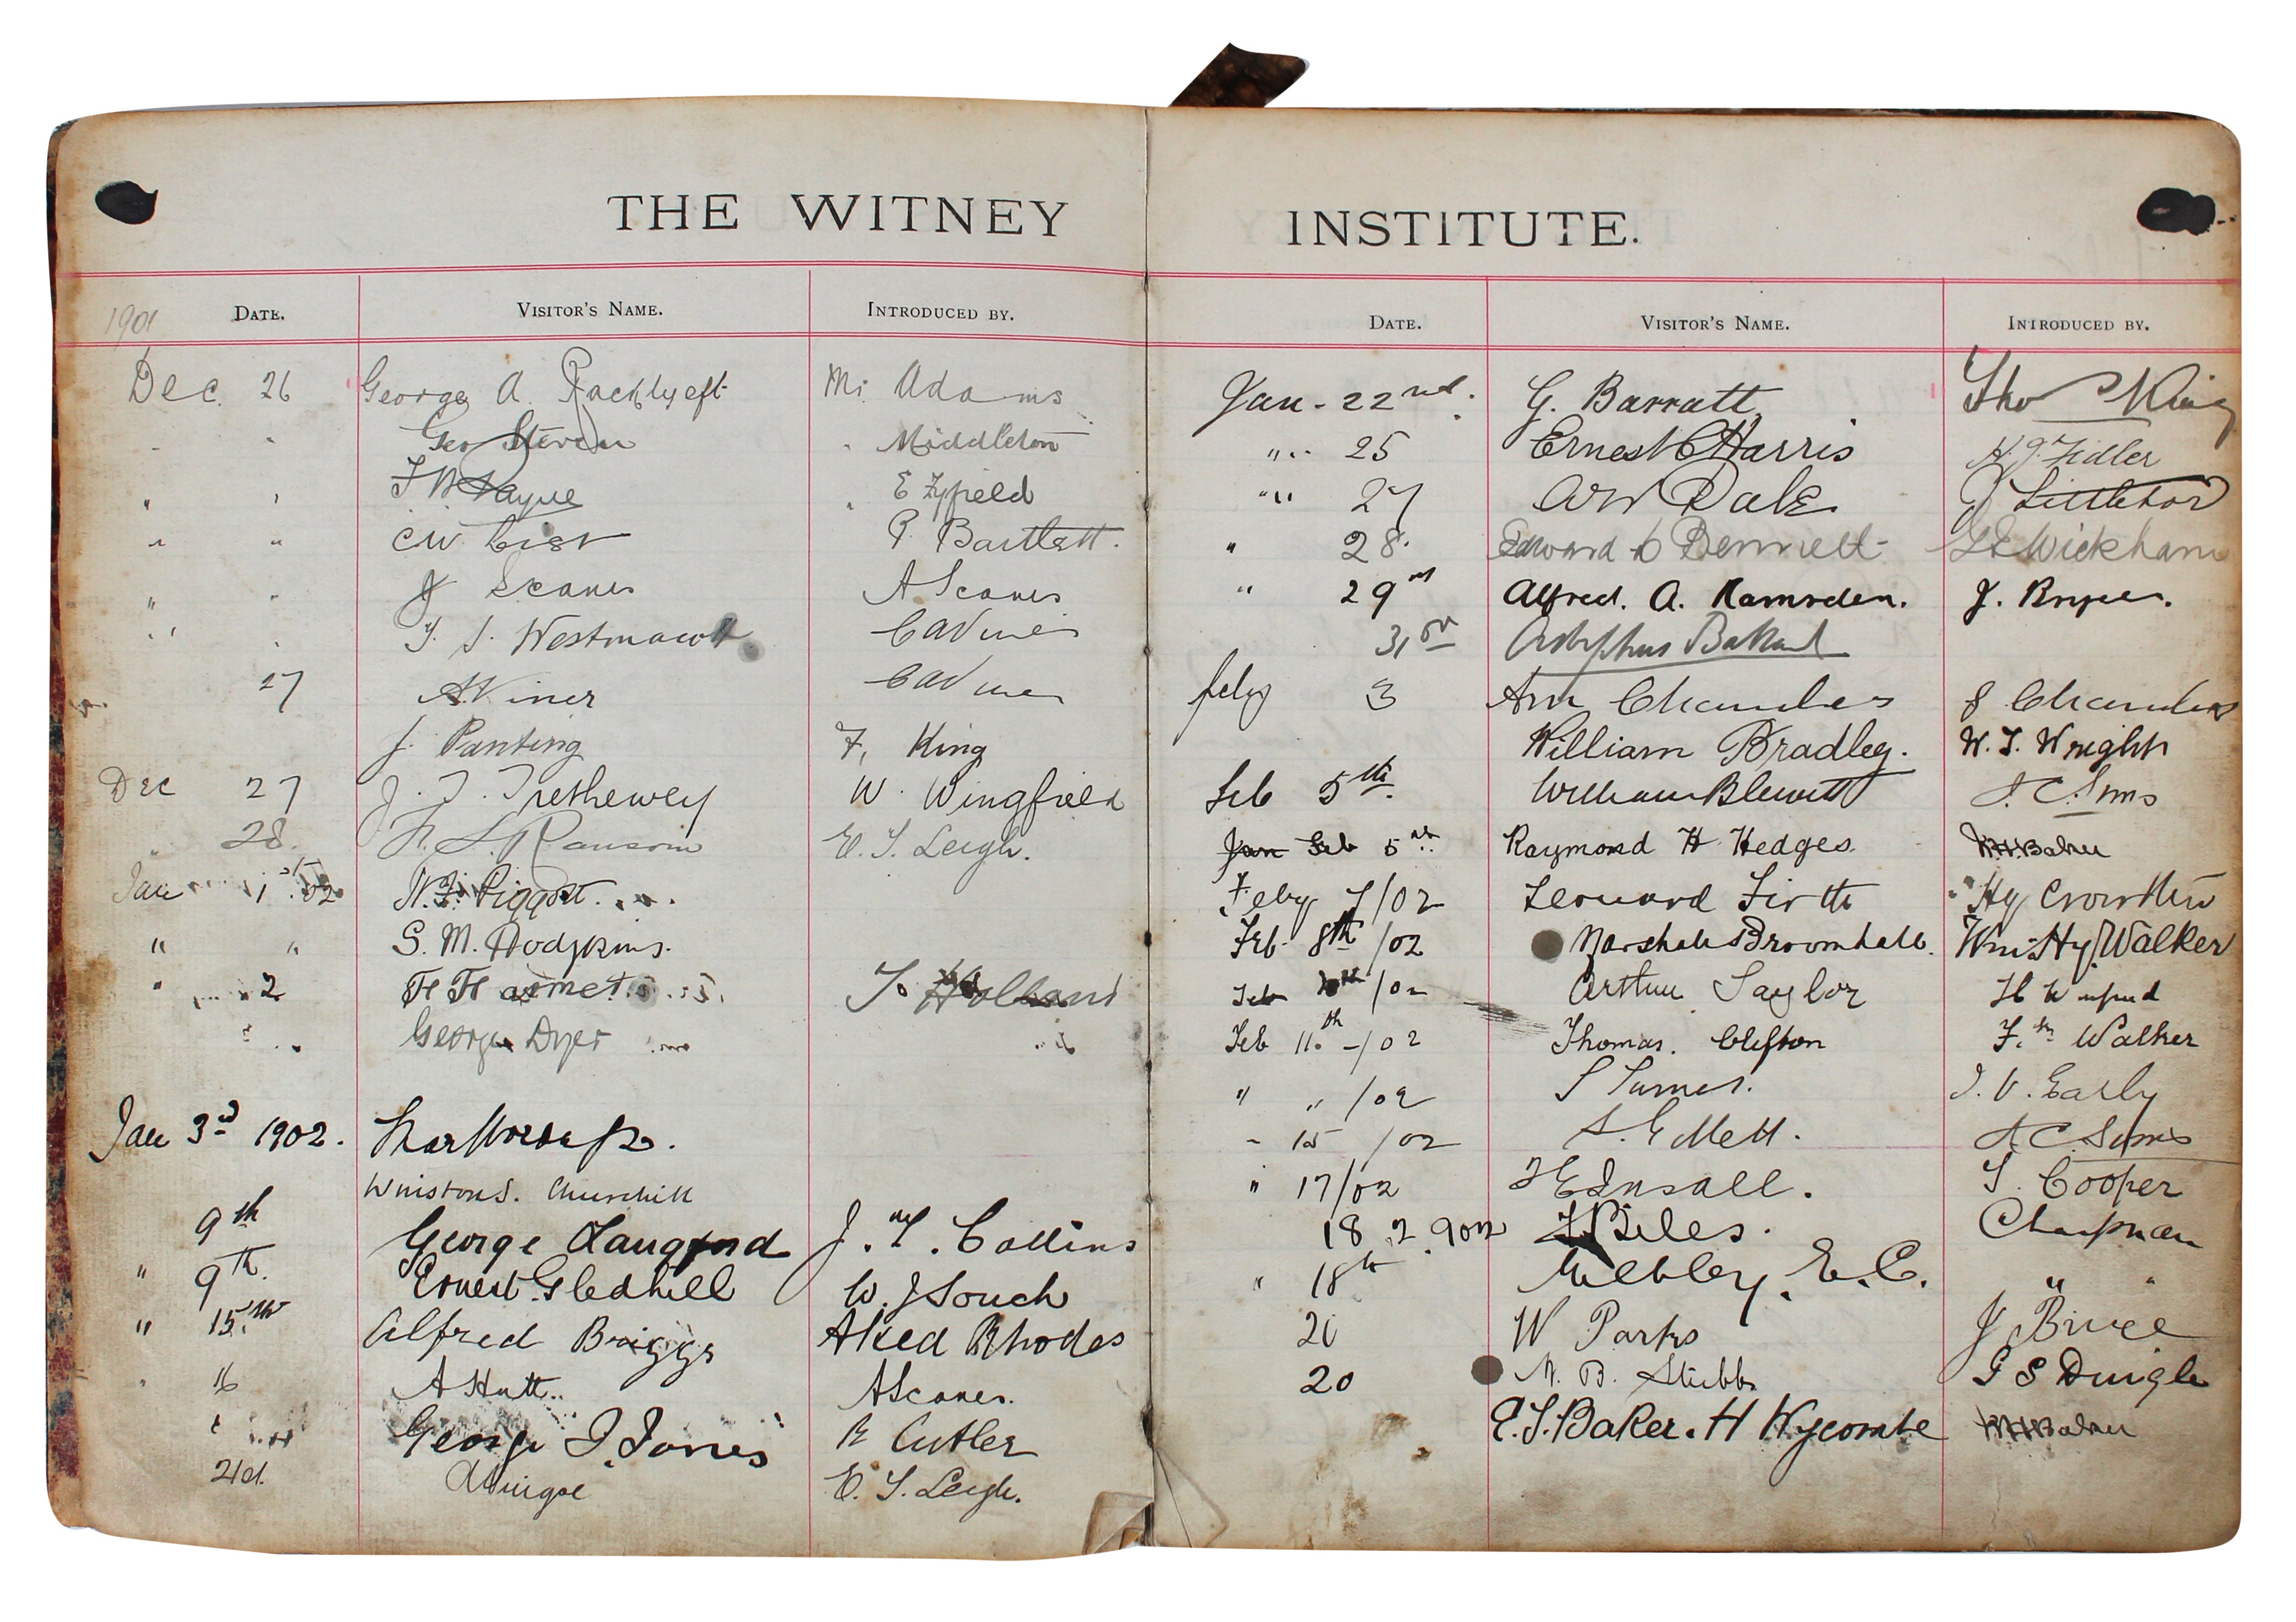 THE WITNEY INSTITUTE.
1901 DATE. VISITOR'S NAME. INTRODUCED BY.
Dec. 26 George A. Racklyeft Mr Adams
" " Geo Steven " Middleton
" " Payne " E
" " CW List P. Bartlett.
" " J Scanes A Scanes
" " T. S. C A Viner
27 A Viner C A Viner
J. Panting F. King
Dec 27 J. T. Trethewey W. Wingfield
" 28. Ransom E. T. Leigh.
Jan 1st. 02 Piggott.
" " S. M. Hodgkins.
" 2 T. Holland
George Dyer
Jan 3rd 1902.
Winston S. Churchill
9th George Langford J. Collins
" 9th. Ernest Gledhill W. J Souch
" 15th Alfred Briggs Aked Rhodes
" 16 A Hutt.. A Scanes.
George J. Jones R Cutler
21st E. T. Leigh.
DATE. VISITOR'S NAME. INTRODUCED BY.
Jan - 22nd. G. Barratt Tho King
" 25 Ernest C Harris H. J. Fidler
" 27 AW Dale J Littleton
" 28. Edward Bennett Wickham
" 29th Alfred. A. Ramsden. J.
31st Adolphus Ballard
feby 3 Chambers J Chambers
William Bradley. W. T. Wright
Feb 5th. William Blewitt J. C. Sims
Jan Feb 5th. Raymond H Hedges. Baker
Feby 7/02 Leonard Firth Hy Crowther
Feb 8th /02 Marshall Broomhall. Wm. Hy. Walker
Feb /02 Arthur Taylor
Feb 11.th -/02 Thomas. Clifton F. Walker
" " /02 S Turner. J. V. Early
" 15 /02 J. C. Sims
" 17/02 Insall. T. Cooper
18 . 2 . 902 Biles. Chapman
" 18th E. C. " "
20 W Parks J Bruce
20 B. Stubbs G S Dingle
E. T. Baker. H Wycombe Baker